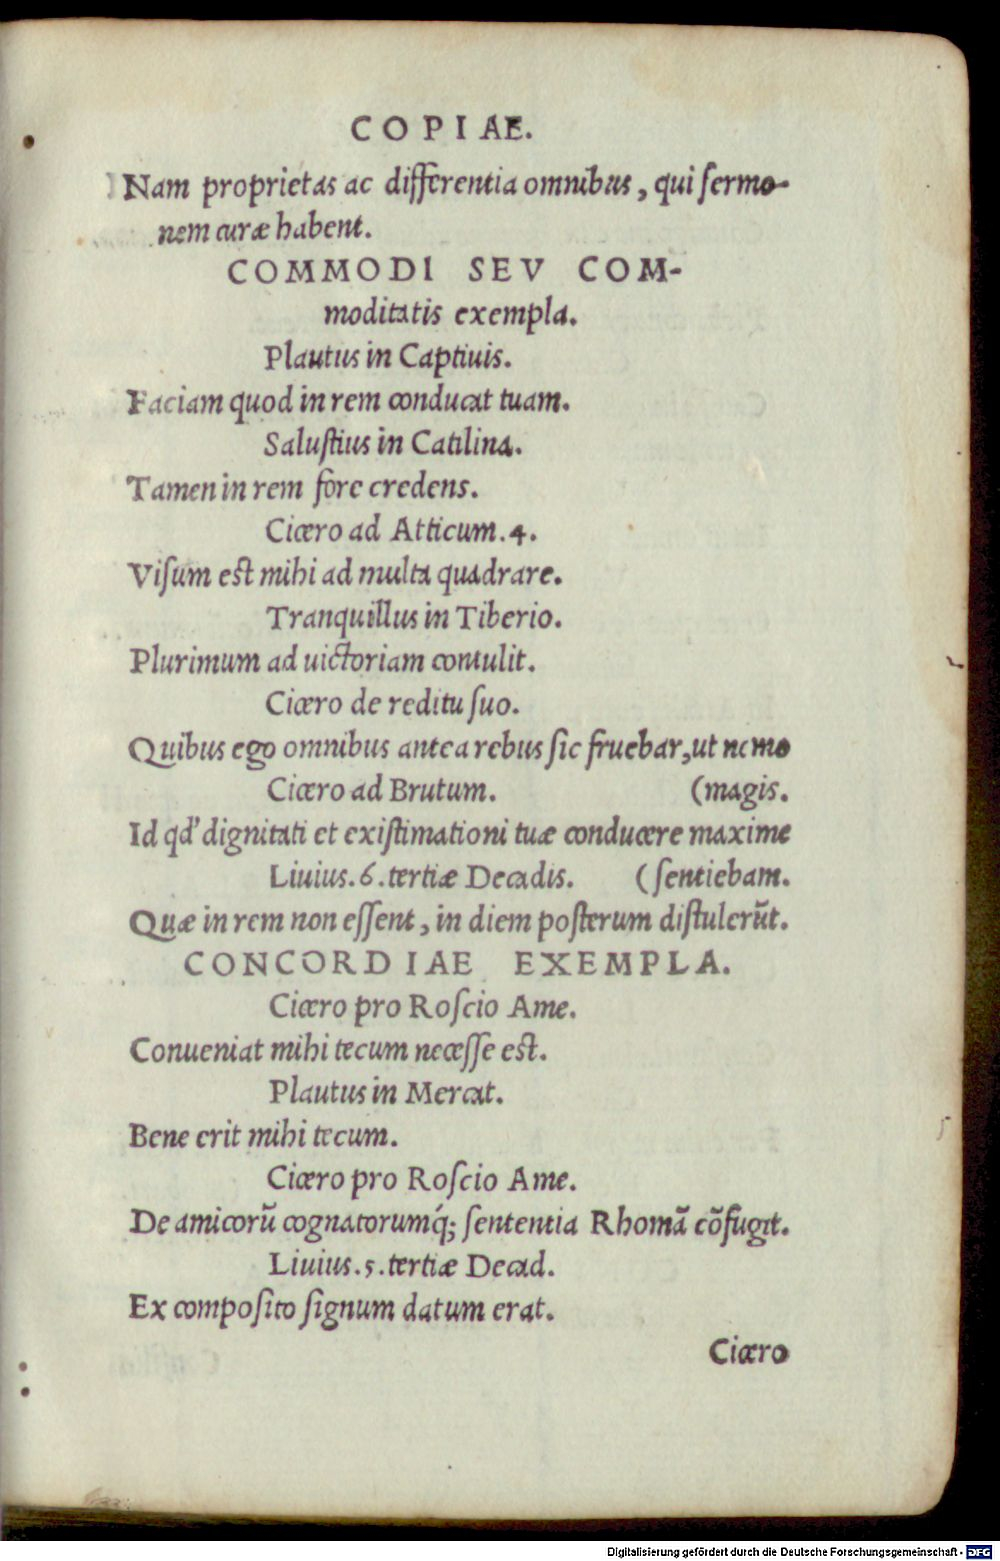 COPIAE.
Nam proprietas ac differentia omnibus, qui sermo-
nem curæ habent.
COMMODI SEV COM-
moditatis exempla.
Plautus in Captiuis.
Faciam quod in rem conducat tuam.
Salustius in Catilina.
Tamen in rem fore credens.
Cicero ad Atticum.4.
Visum est mihi ad multa quadrare.
Tranquillus in Tiberio.
Plurimum ad uictoriam contulit.
Cicero de reditu suo.
Quibus ego omnibus antea rebus sic fruebar, ut nemo
Cicero ad Brutum. (magis.
Id qd' dignitati et existimationi tuæ conducere maxime
Liuius.6.tertiæ Decadis. (sentiebam.
Quæ in rem non essent, in diem posterum distulerũt.
CONCORDIAE EXEMPLA.
Cicero pro Roscio Ame.
Conueniat mihi tecum necesse est.
Plautus in Mercat.
Bene erit mihi tecum.
Cicero pro Roscio Ame.
De amicorũ cognatorumq́; sententia Rhomã cõfugit.
Liuius.5.tertiæ Decad.
Ex composito signum datum erat.
Cicero
Digitalisierung gefördert durch die Deutsche Forschungsgemeinschaft - DFG